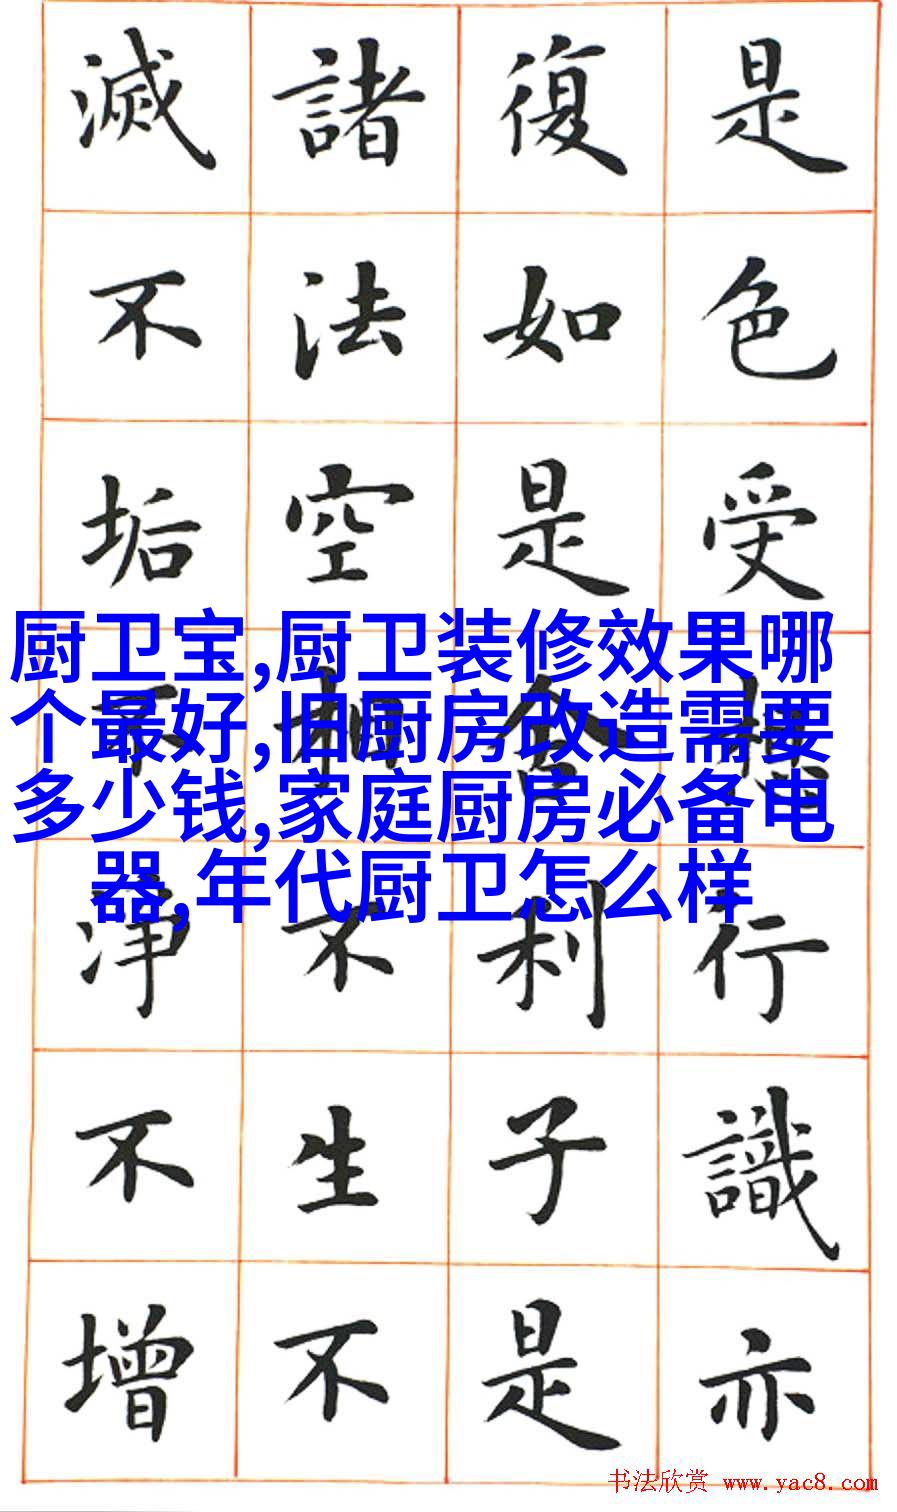 是色受想行識亦
復如是舍利子是
諸法空相不生不
滅不垢不净不增
厨卫宝,厨卫装修效果哪
个最好,旧厨房改造需要
多少钱,家庭厨房必备电
器,年代厨卫怎么样
书法欣赏 www.yac8.com